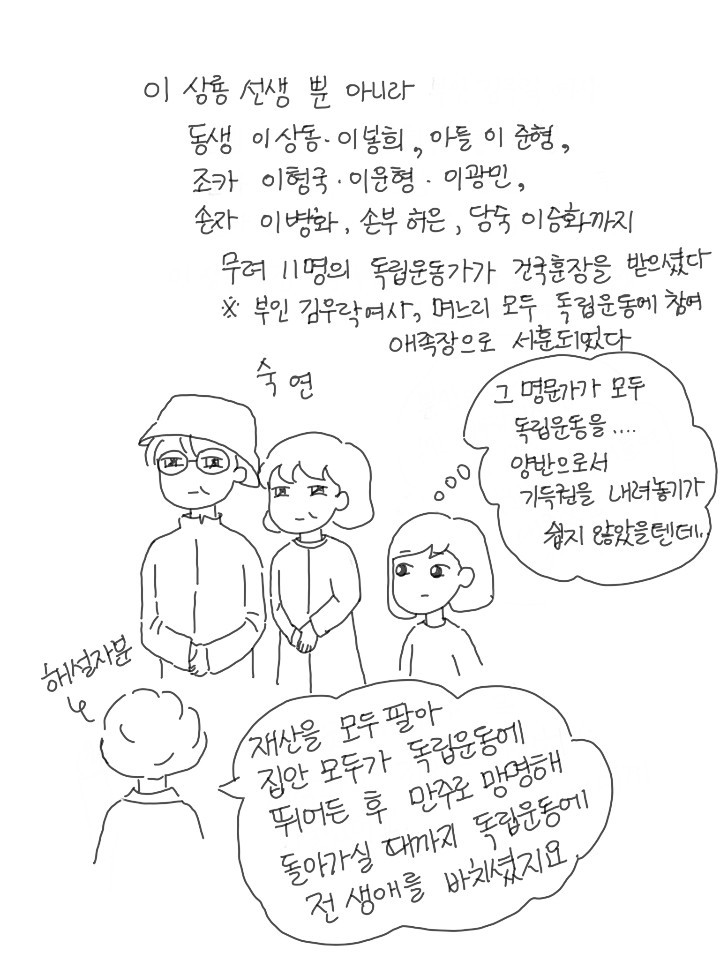 이 상룡 선생 뿐 아니라
동생 이상동·이봉희, 아들 이 준형,
조카 이형국·이운형·이광민,
손자 이병화, 손부 허은, 당숙 이승화까지
무려 11명의 독립운동가가 건국훈장을 받으셨다
※ 부인 김우락여사, 며느리 모두 독립운동에 참여
애족장으로 서훈되었다
숙연
그 명문가가 모두
독립운동을....
양반으로서
기득권을 내려놓기가
쉽지 않았을텐데..
해설자분
재산을 모두 팔아
집안 모두가 독립운동에
뛰어든 후 만주로 망명해
돌아가실 때까지 독립운동에
전 생애를 바치셨지요